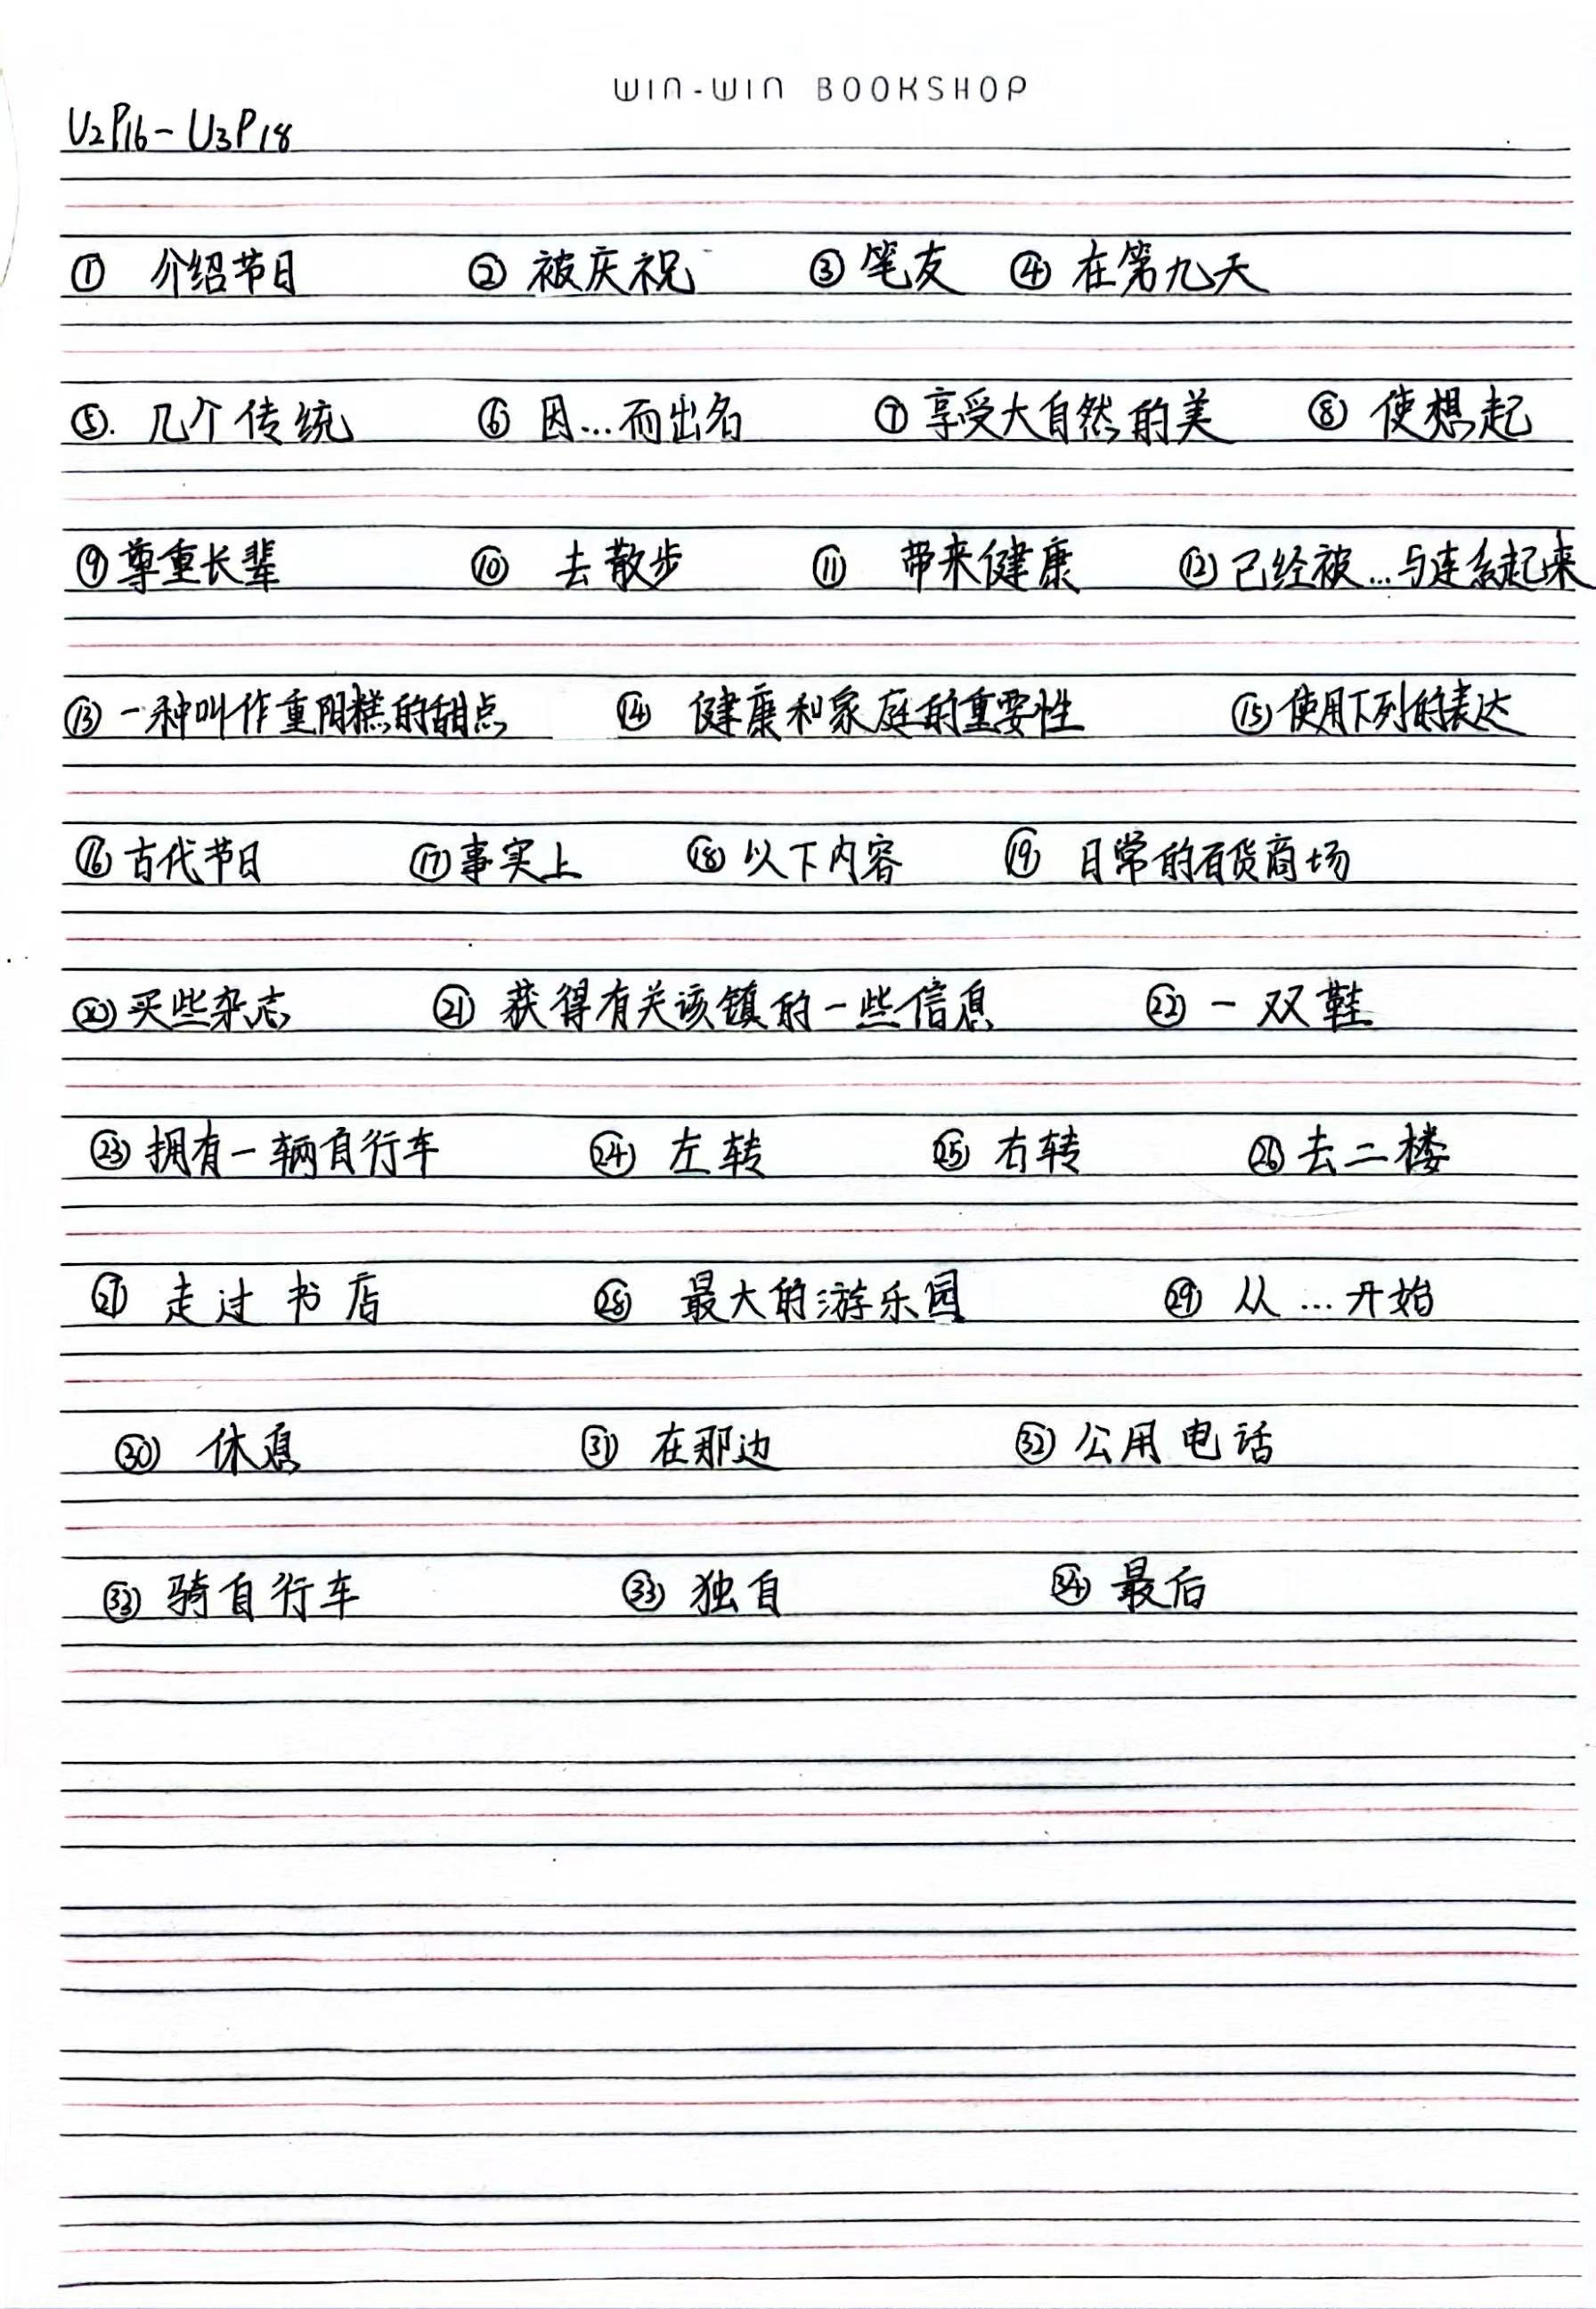 WIN-WIN BOOKSHOP
U2P16-U3P18
① 介绍节日 ② 被庆祝 ③ 笔友 ④ 在第九天
⑤. 几个传统 ⑥ 因...而出名 ⑦ 享受大自然的美 ⑧ 使想起
⑨ 尊重长辈 ⑩ 去散步 ⑪ 带来健康 ⑫ 已经被...与连系起来
⑬ 一种叫作重阳糕的甜点 ⑭ 健康和家庭的重要性 ⑮ 使用下列的表达
⑯ 古代节日 ⑰ 事实上 ⑱ 以下内容 ⑲ 日常的百货商场
⑳ 买些杂志 ㉑ 获得有关该镇的一些信息 ㉒ 一双鞋
㉓ 拥有一辆自行车 ㉔ 左转 ㉕ 右转 ㉖ 去二楼
㉗ 走过书店 ㉘ 最大的游乐园 ㉙ 从...开始
㉚ 休息 ㉛ 在那边 ㉜ 公用电话
㉝ 骑自行车 ㉝ 独自 ㉞ 最后